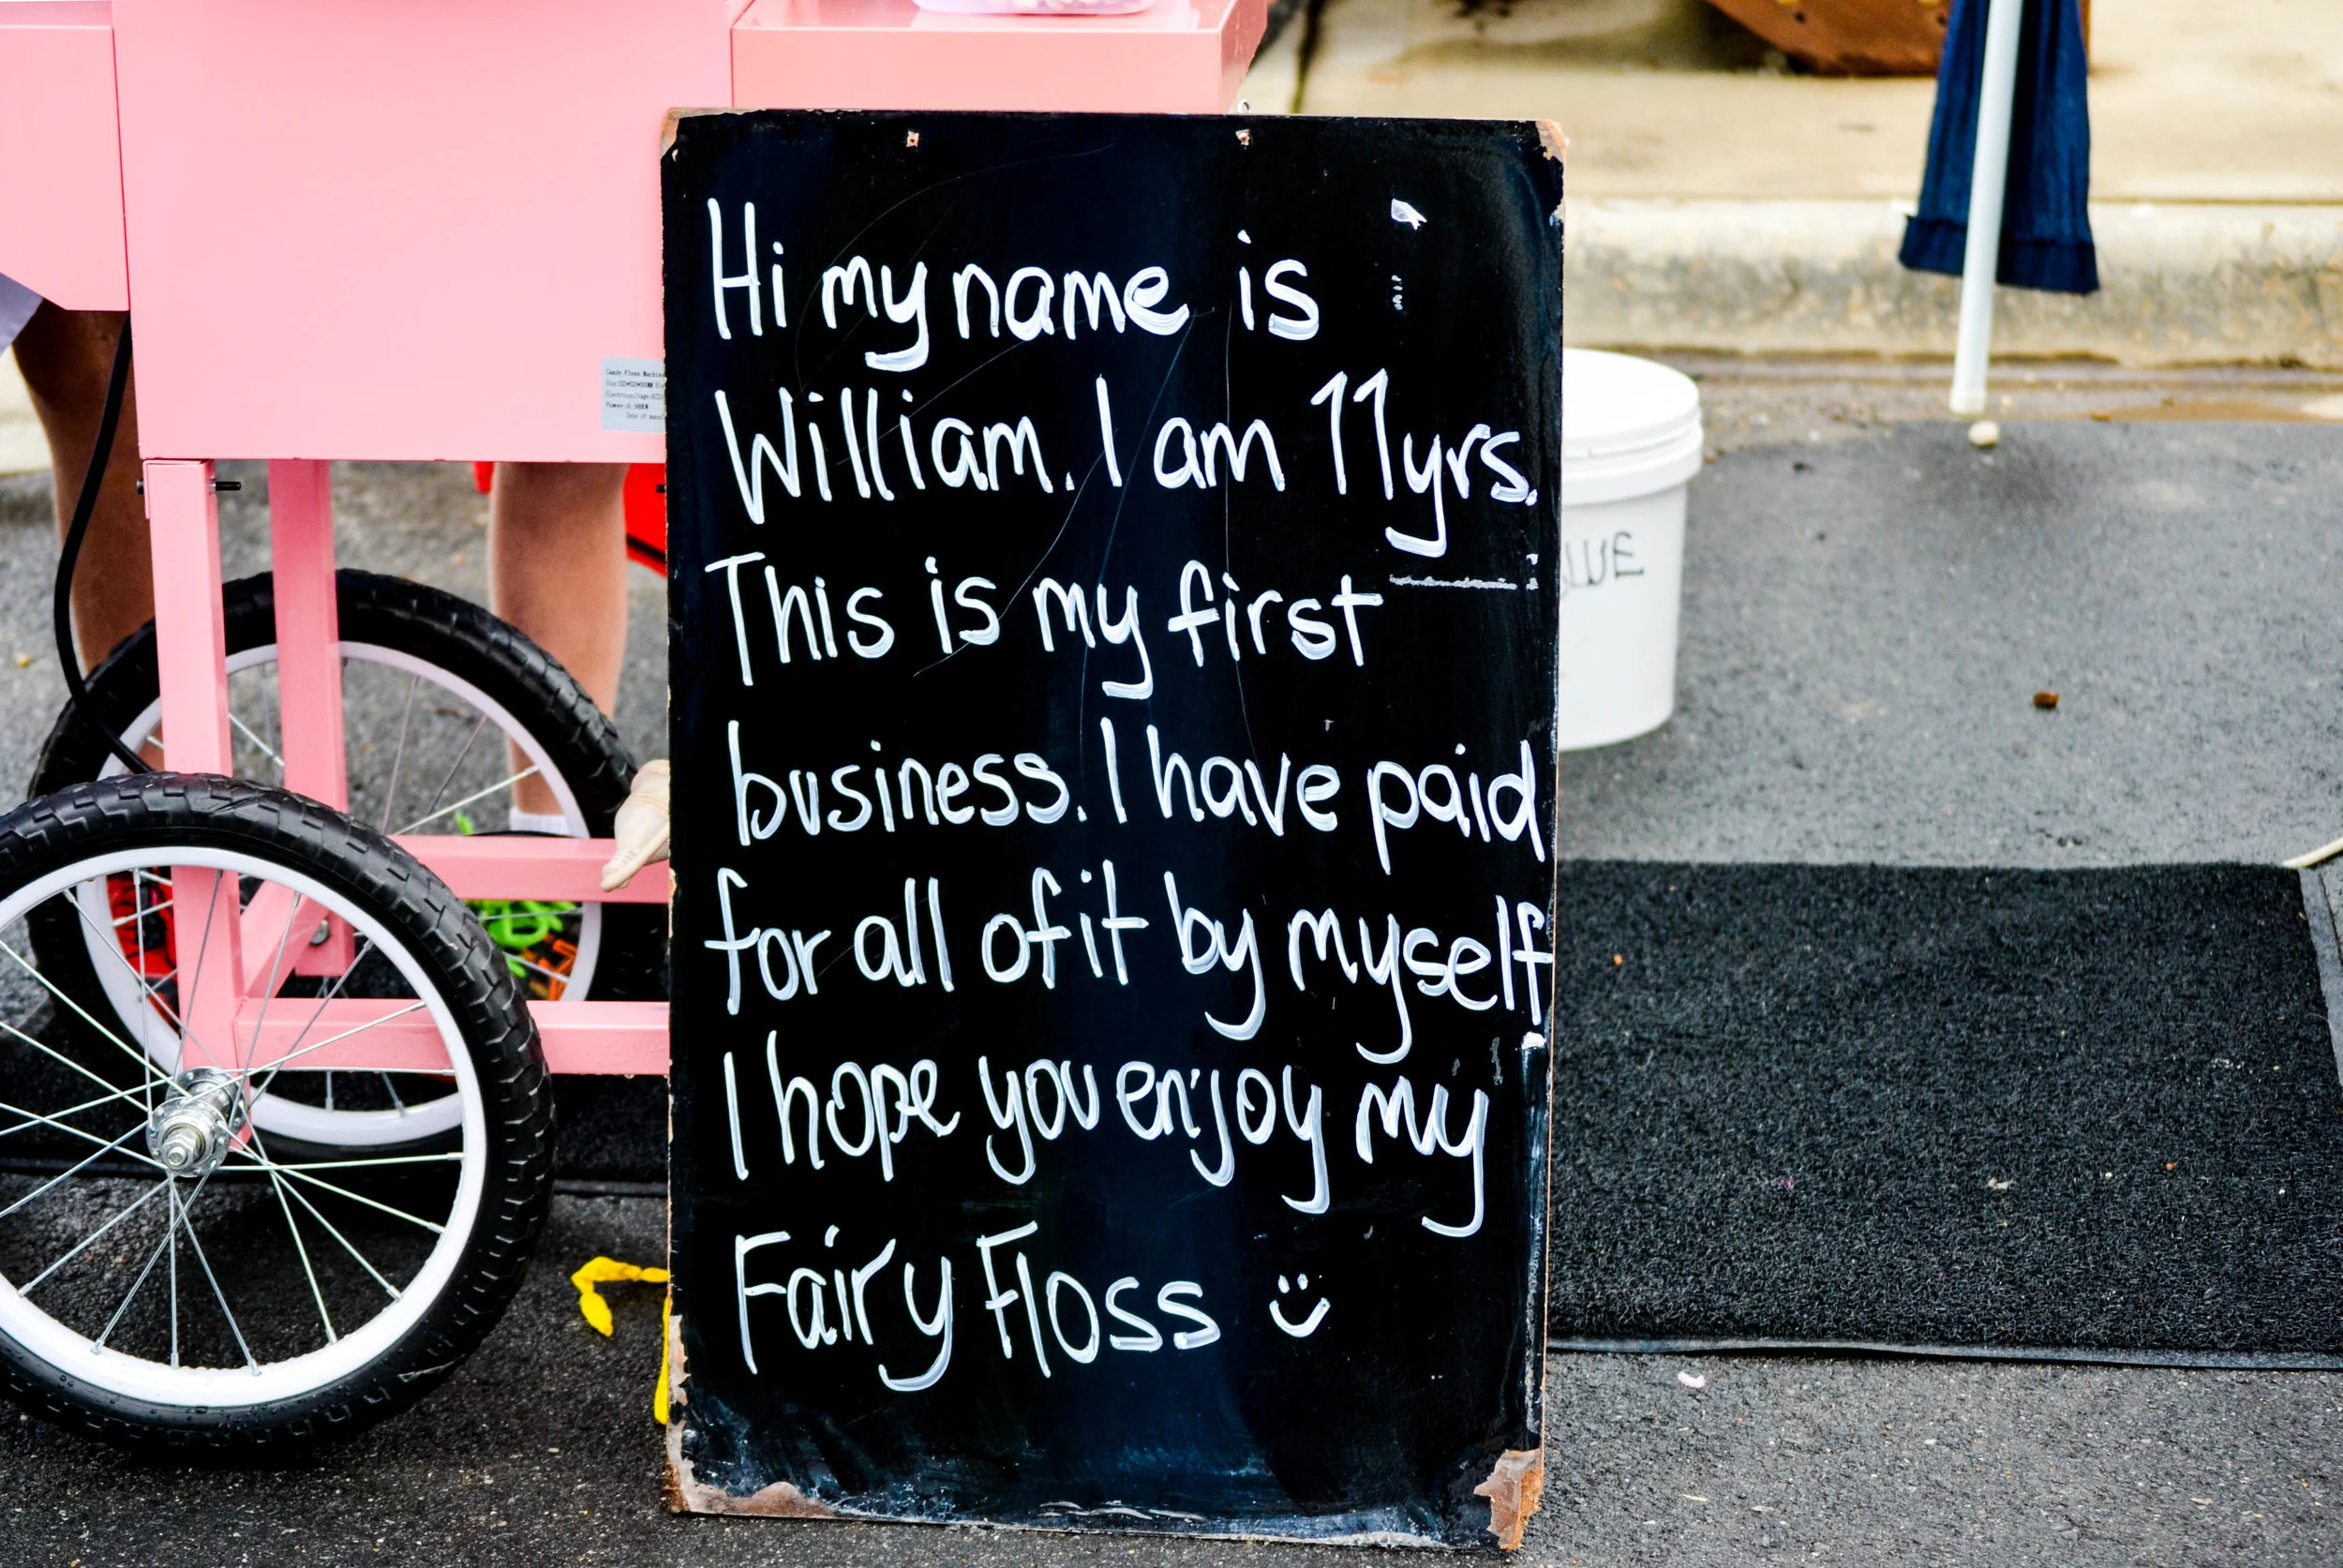 Candy Floss Machine
Hi my name is
William. I am 11yrs.
This is my first
business. I have paid
for all of it by myself
I hope you enjoy my
Fairy Floss